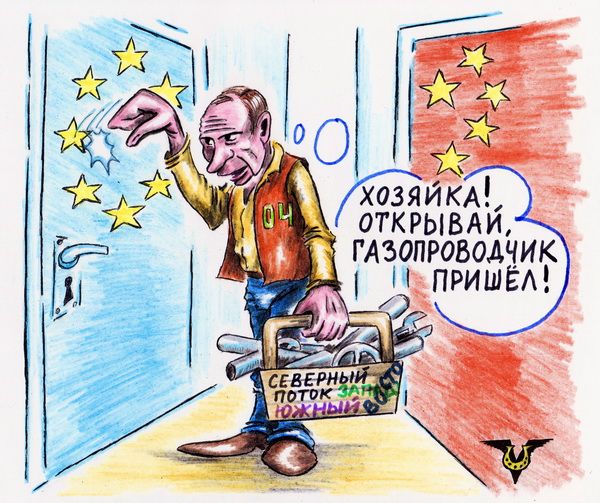 04
ХОЗЯЙКА!
ОТКРЫВАЙ,
ГАЗОПРОВОДЧИК
ПРИШЁЛ!
СЕВЕРНЫЙ
ПОТОК
ЮЖНЫЙ